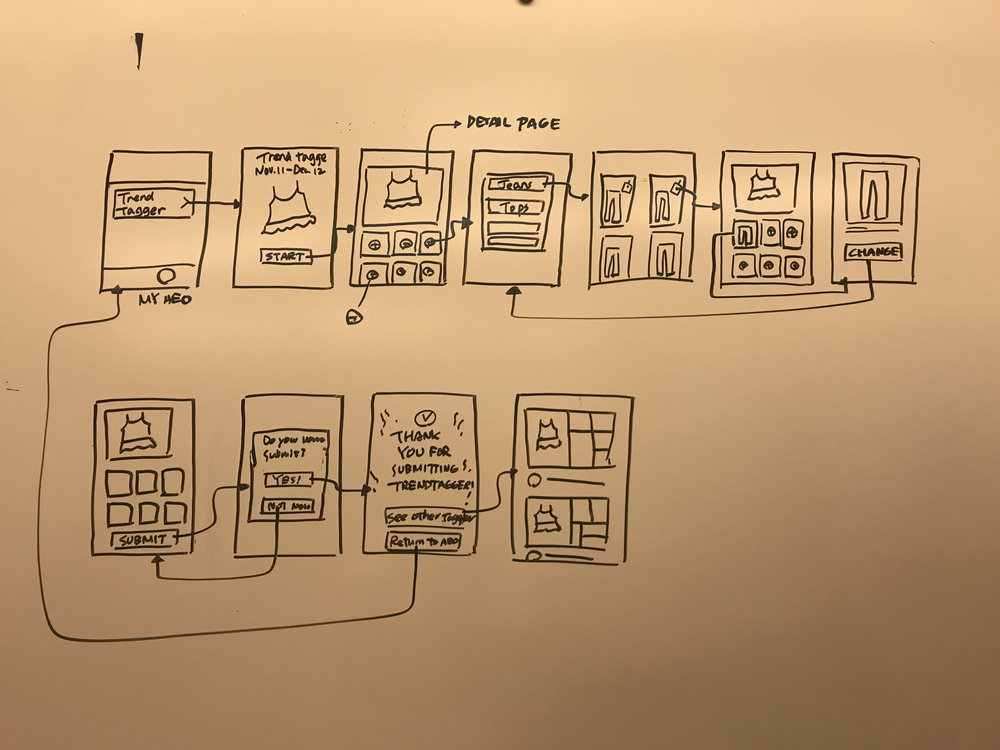 DETAIL PAGE
Trend
Tagger
MY AEO
Trend tagge
Nov. 11 - Dec. 12
START
Jeans
Tops
CHANGE
SUBMIT
Do you
Submit?
YES!
NOT NOW
THANK
YOU FOR
SUBMITTING
TRENDTAGGER!
See other Tagger
Return to AEO